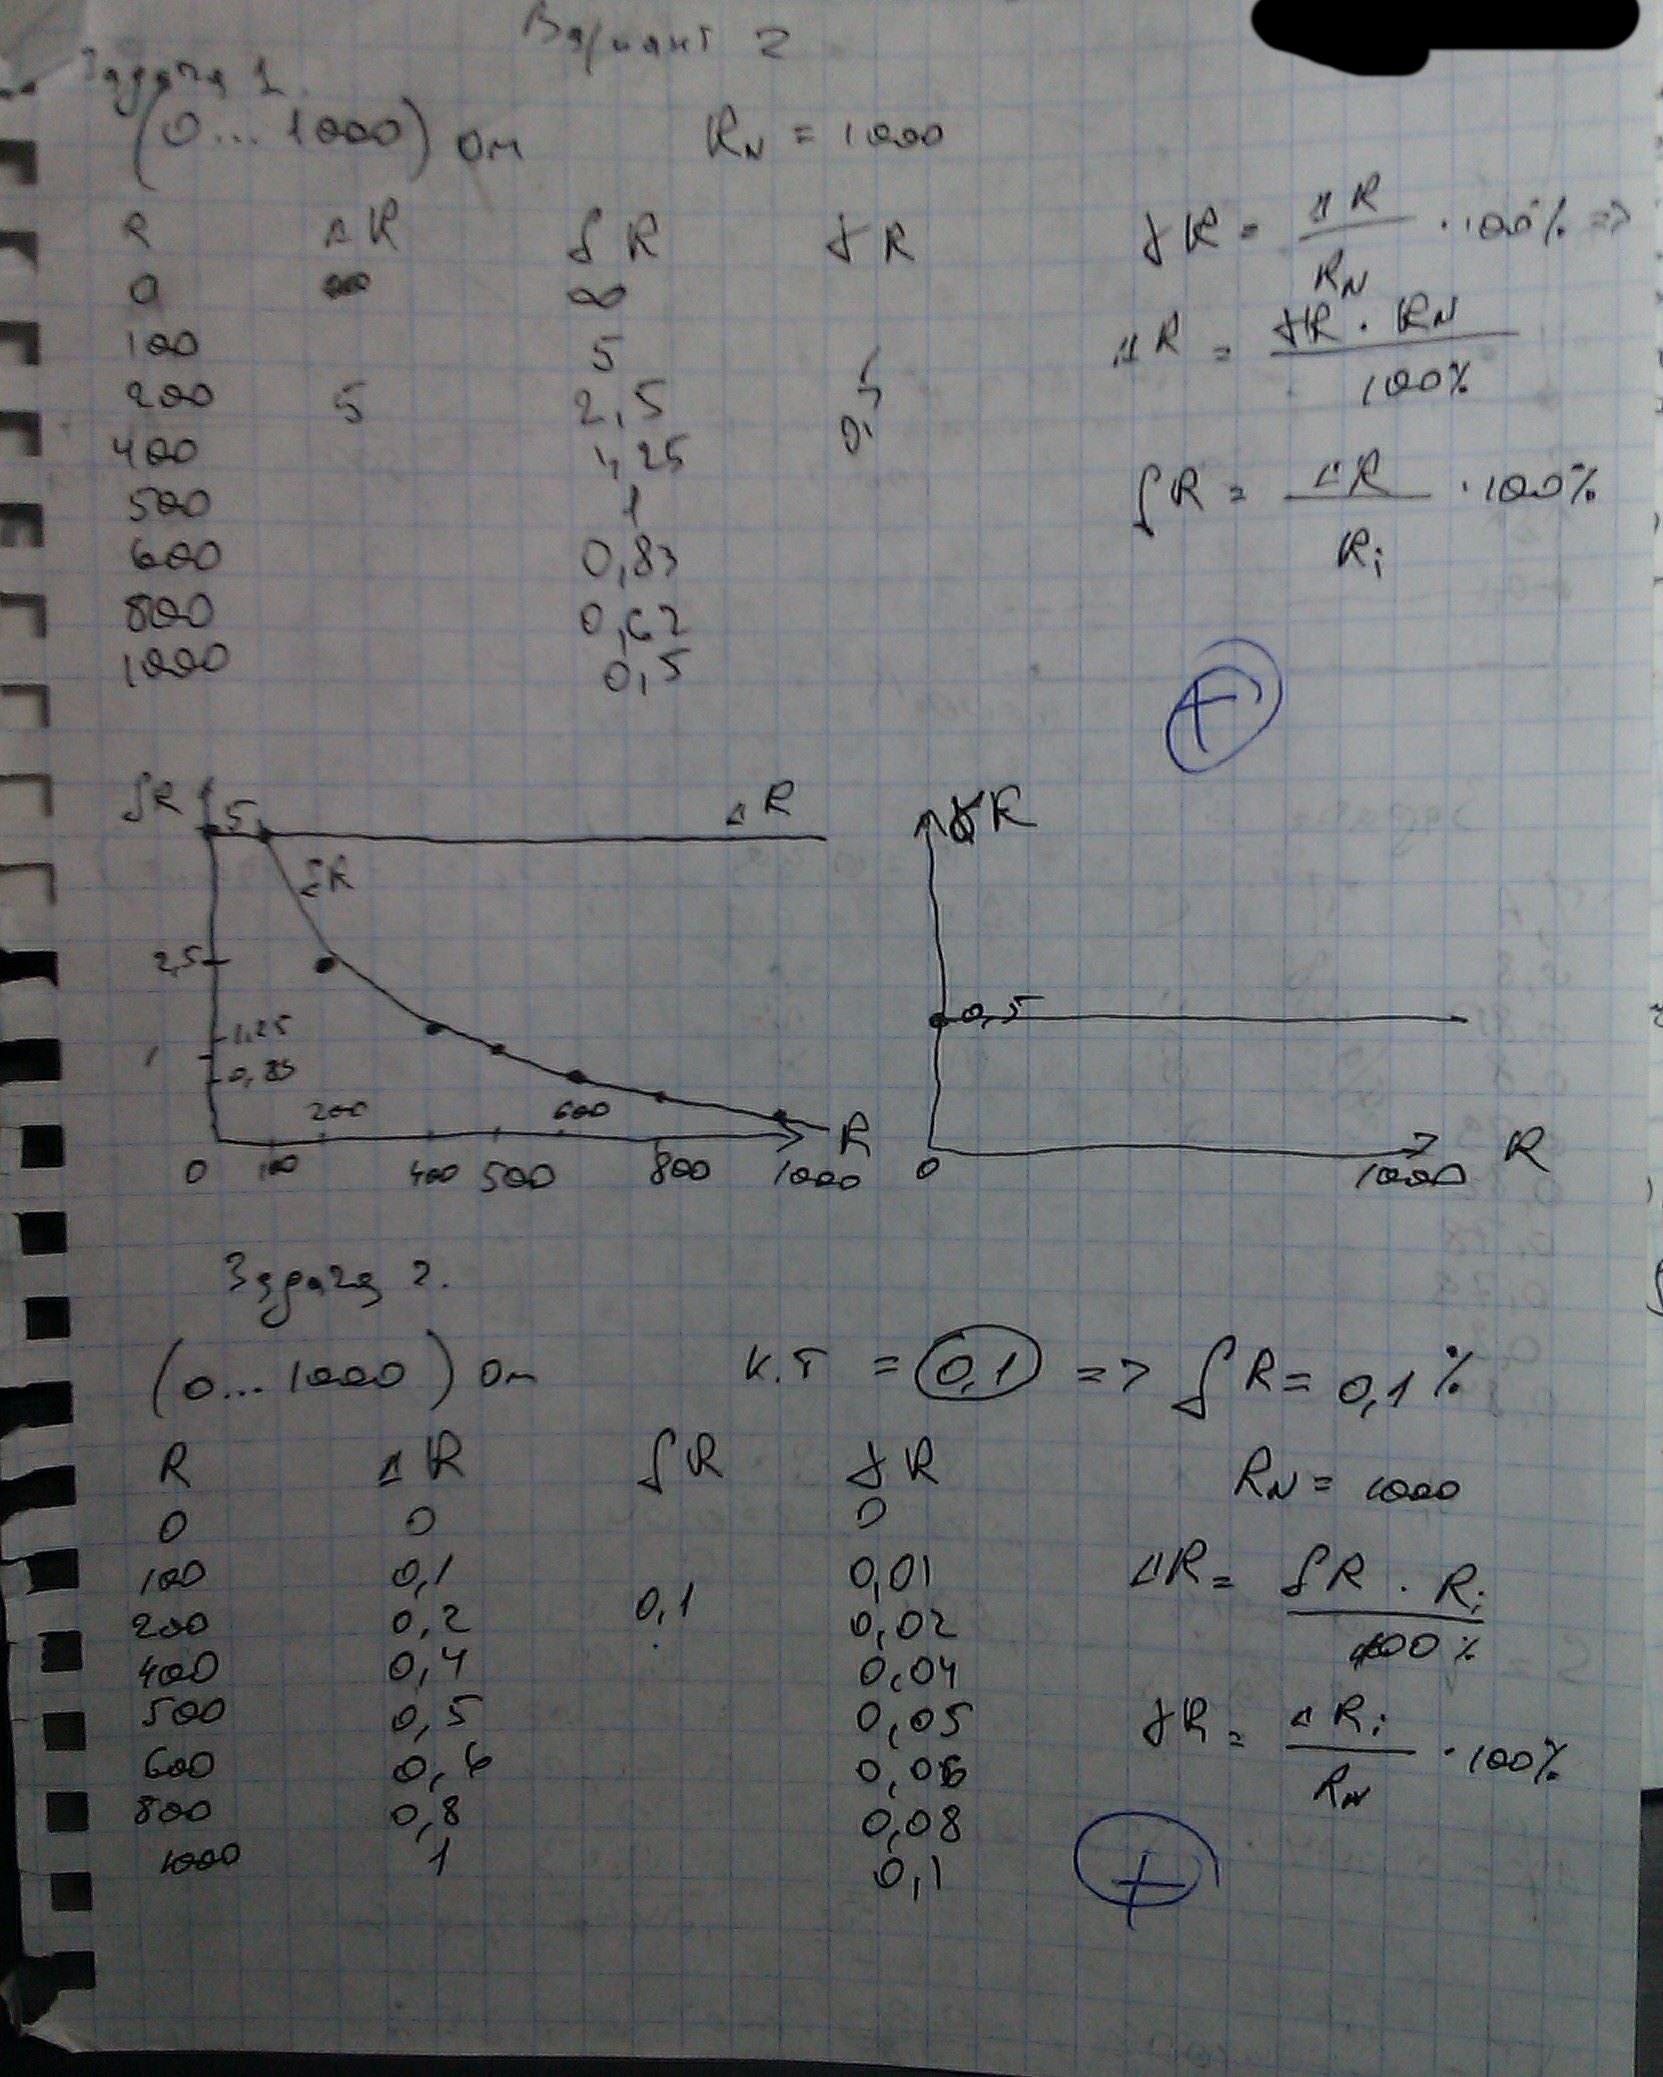 Вариант 2
Задача 1.
(0...1000) Ом R_N = 1000
R ΔR δR γR
0 ∞
100 5
200 5 2,5
400 1,25
500 1
600 0,83
800 0,62
1000 0,5
0,5
γR = ΔR / R_N · 100% =>
ΔR = γR · R_N / 100%
δR = ΔR / R_i · 100%
+
δR 5 ΔR
δR
2,5
1,25
1
0,83
200 600 R
0 100 400 500 800 1000
γR
0,5
0 1000 R
Задача 2.
(0...1000) Ом К.Т = 0,1 => δR = 0,1%
R ΔR δR γR
0 0 0
100 0,1 0,01
200 0,2 0,1 0,02
400 0,4 0,04
500 0,5 0,05
600 0,6 0,06
800 0,8 0,08
1000 1 0,1
R_N = 1000
ΔR = δR · R_i / 100%
γR = ΔR_i / R_N · 100%
+